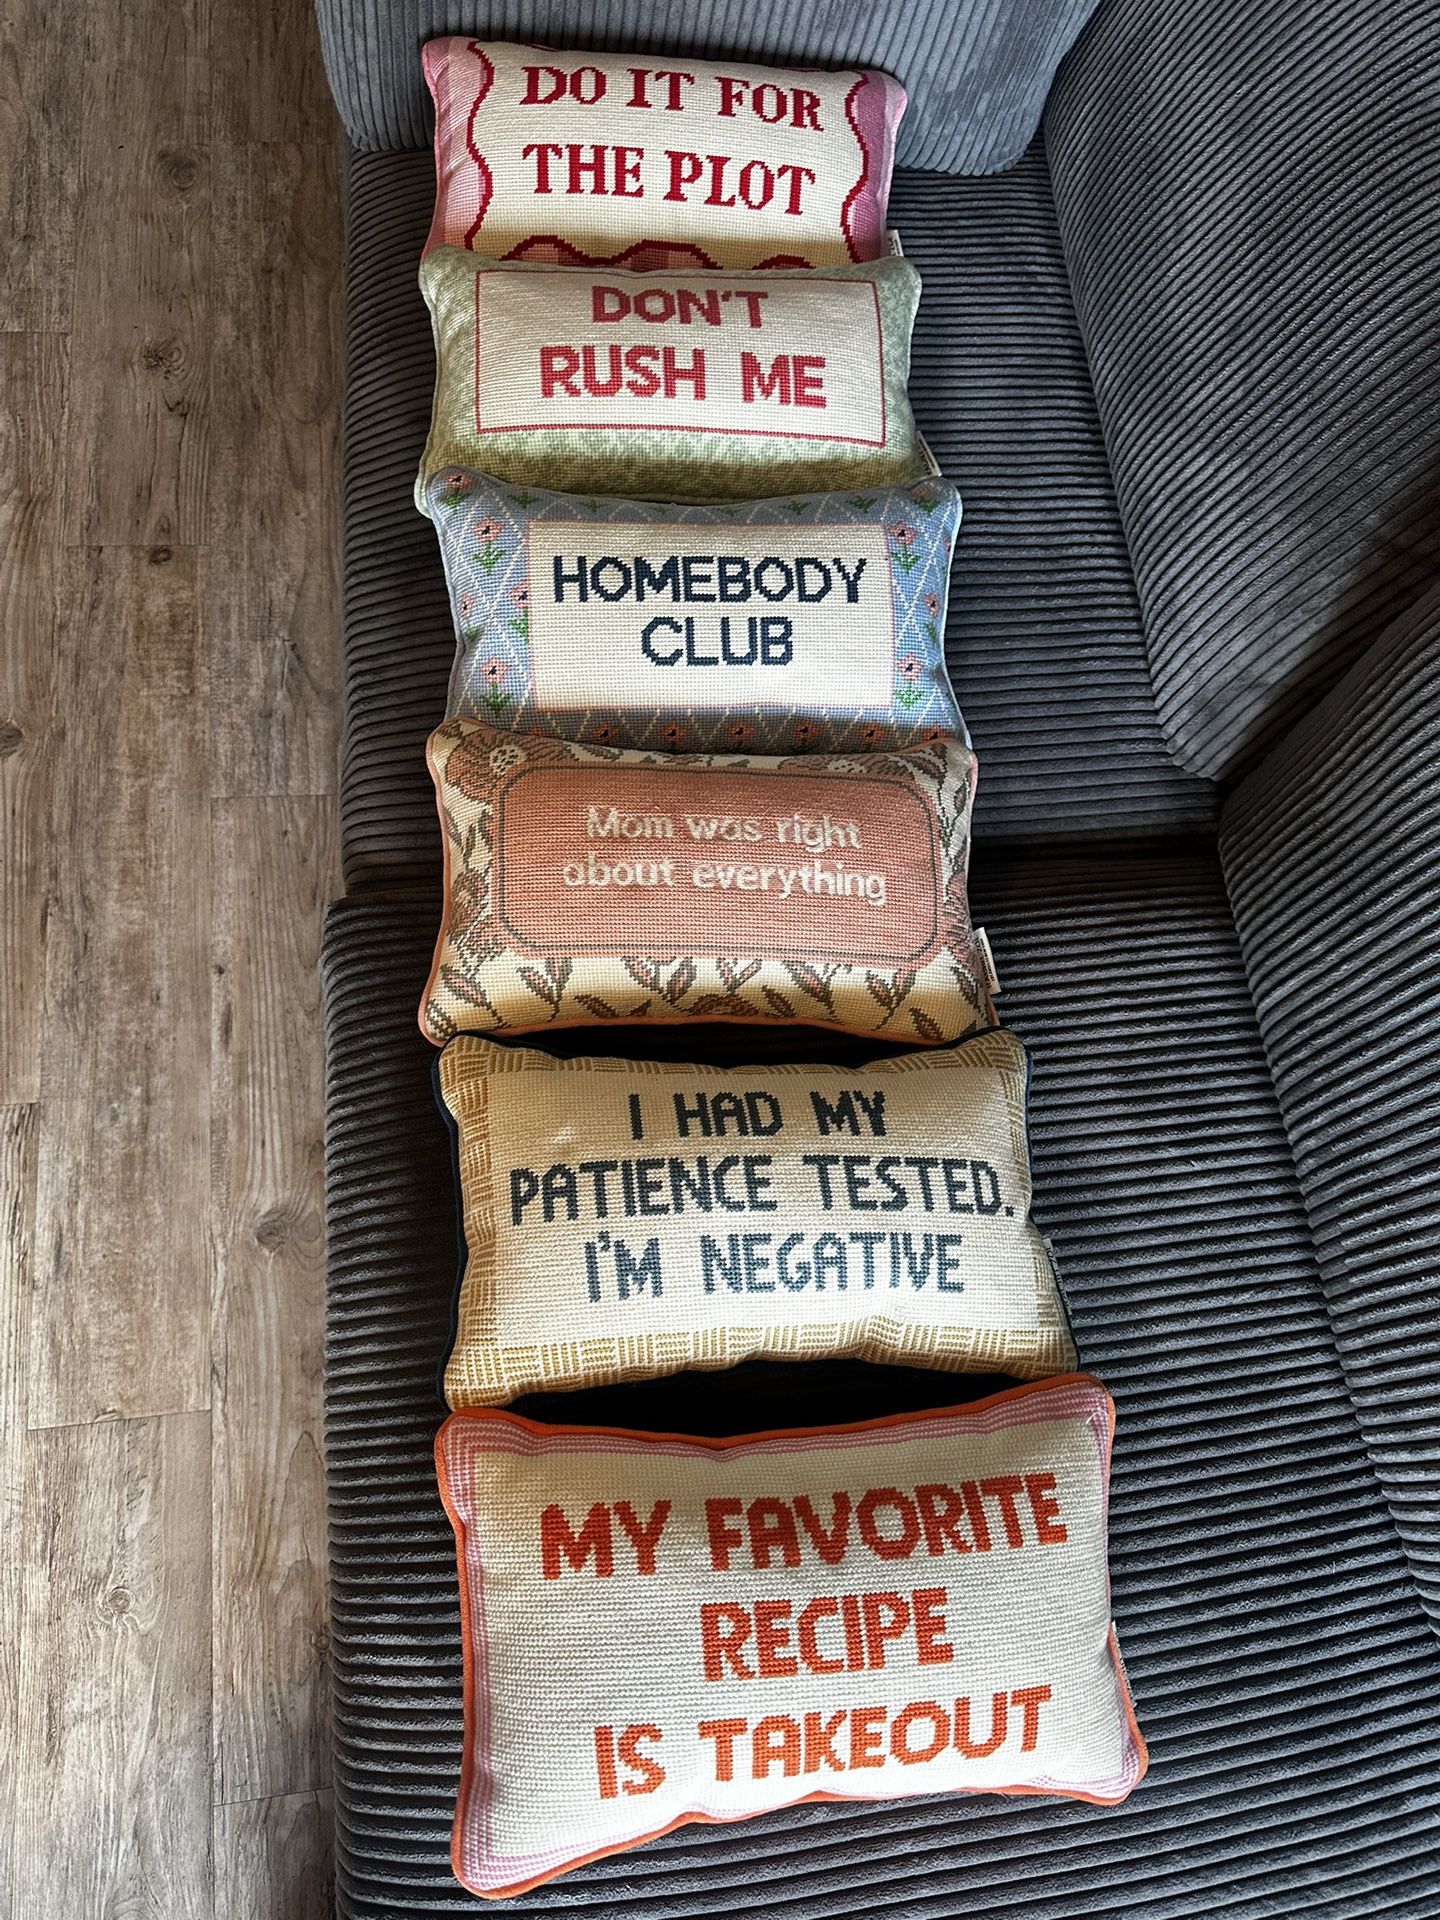 DO IT FOR
THE PLOT
DON'T
RUSH ME
HOMEBODY
CLUB
Mom was right
about everything
I HAD MY
PATIENCE TESTED.
I'M NEGATIVE
MY FAVORITE
RECIPE
IS TAKEOUT